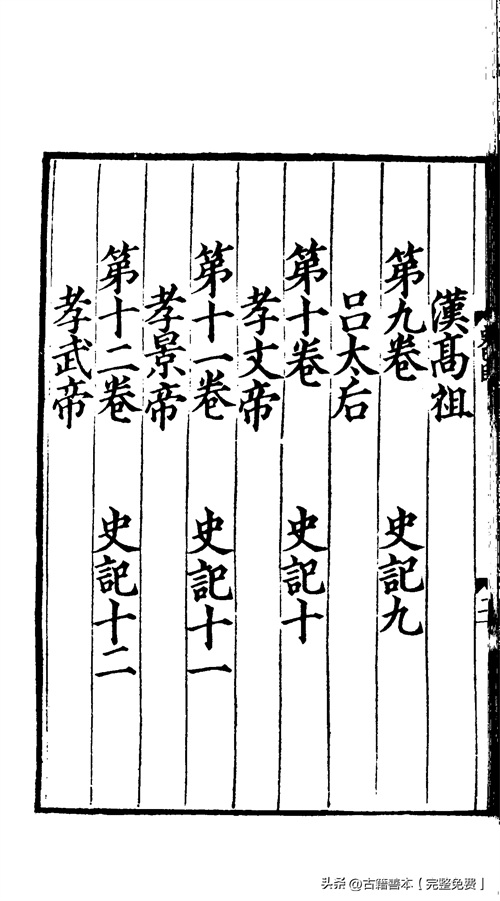 漢髙祖
第九卷 史記九
吕太后
第十卷 史記十
孝文帝
第十一卷 史記十一
孝景帝
第十二卷 史記十二
孝武帝
二
头条 @古籍善本【完整免费】